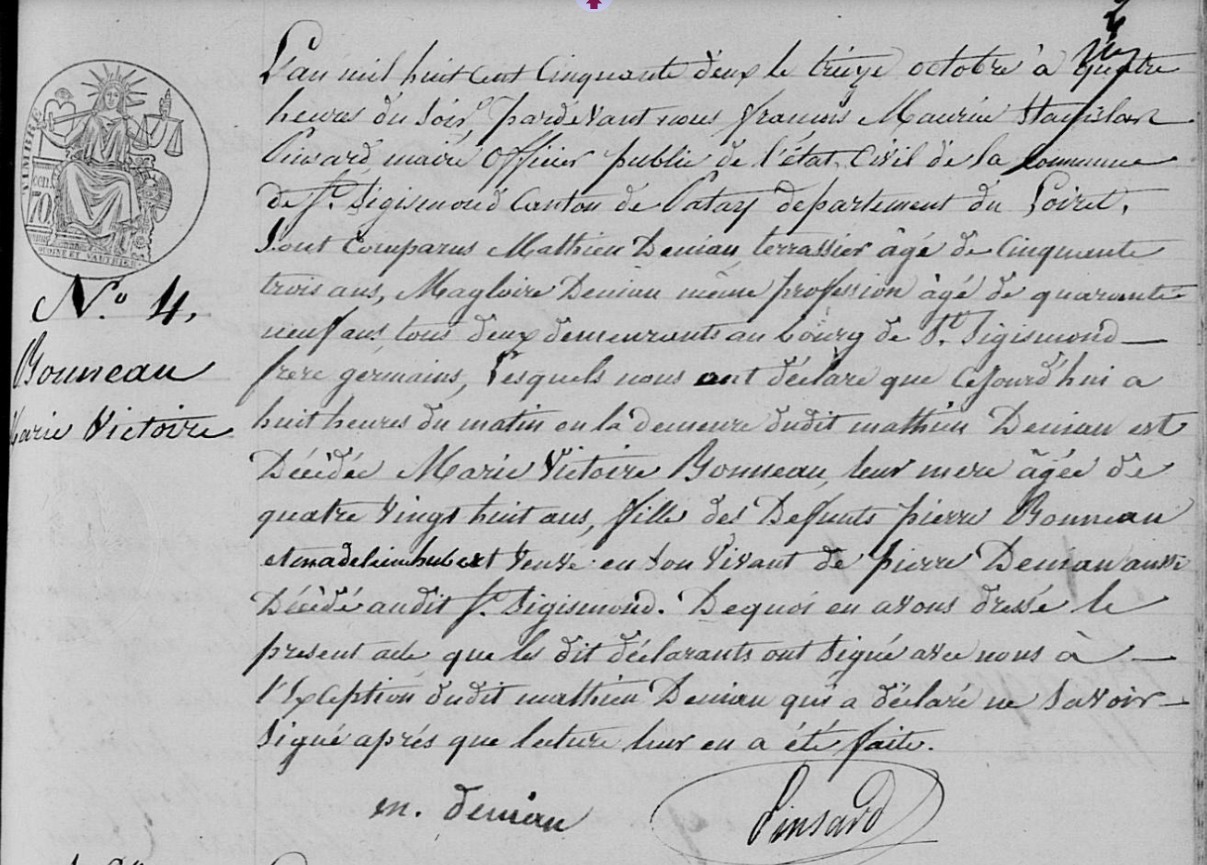 L'an mil huit cent cinquante deux le treize octobre à quatre
heures du soir, pardevant nous françois Maurice Stanislas
Pinsard, maire officier public de l'état civil de la commune
de St. Sigismond canton de Patay departement du Loiret,
Sont comparus Mathieu Denian terrassier âgé de cinquante
trois ans, Magloire Denian même profession âgé de quarante
neuf ans tous deux demeurants au bourg de St. Sigismond
frere germains, Lesquels nous ont déclaré que cejourd'hui a
huit heures du matin en la demeure dudit mathieu Denian est
Décédée Marie Victoire Bonneau, leur mere âgée de
quatre vingt huit ans, fille des Defunts pierre Bonneau
et madelein hubert veuve en son vivant de pierre Denian aussi
Décédé audit St. Sigismond. De quoi en avons dressé le
present acte que les dit déclarants ont signé avec nous à
l'exception dudit mathieu Denian qui a déclaré ne savoir
signé aprés que lecture leur en a été faite.
m. denian Pinsard
TIMBRE
cen.
70
No 4.
Bonneau
Marie Victoire